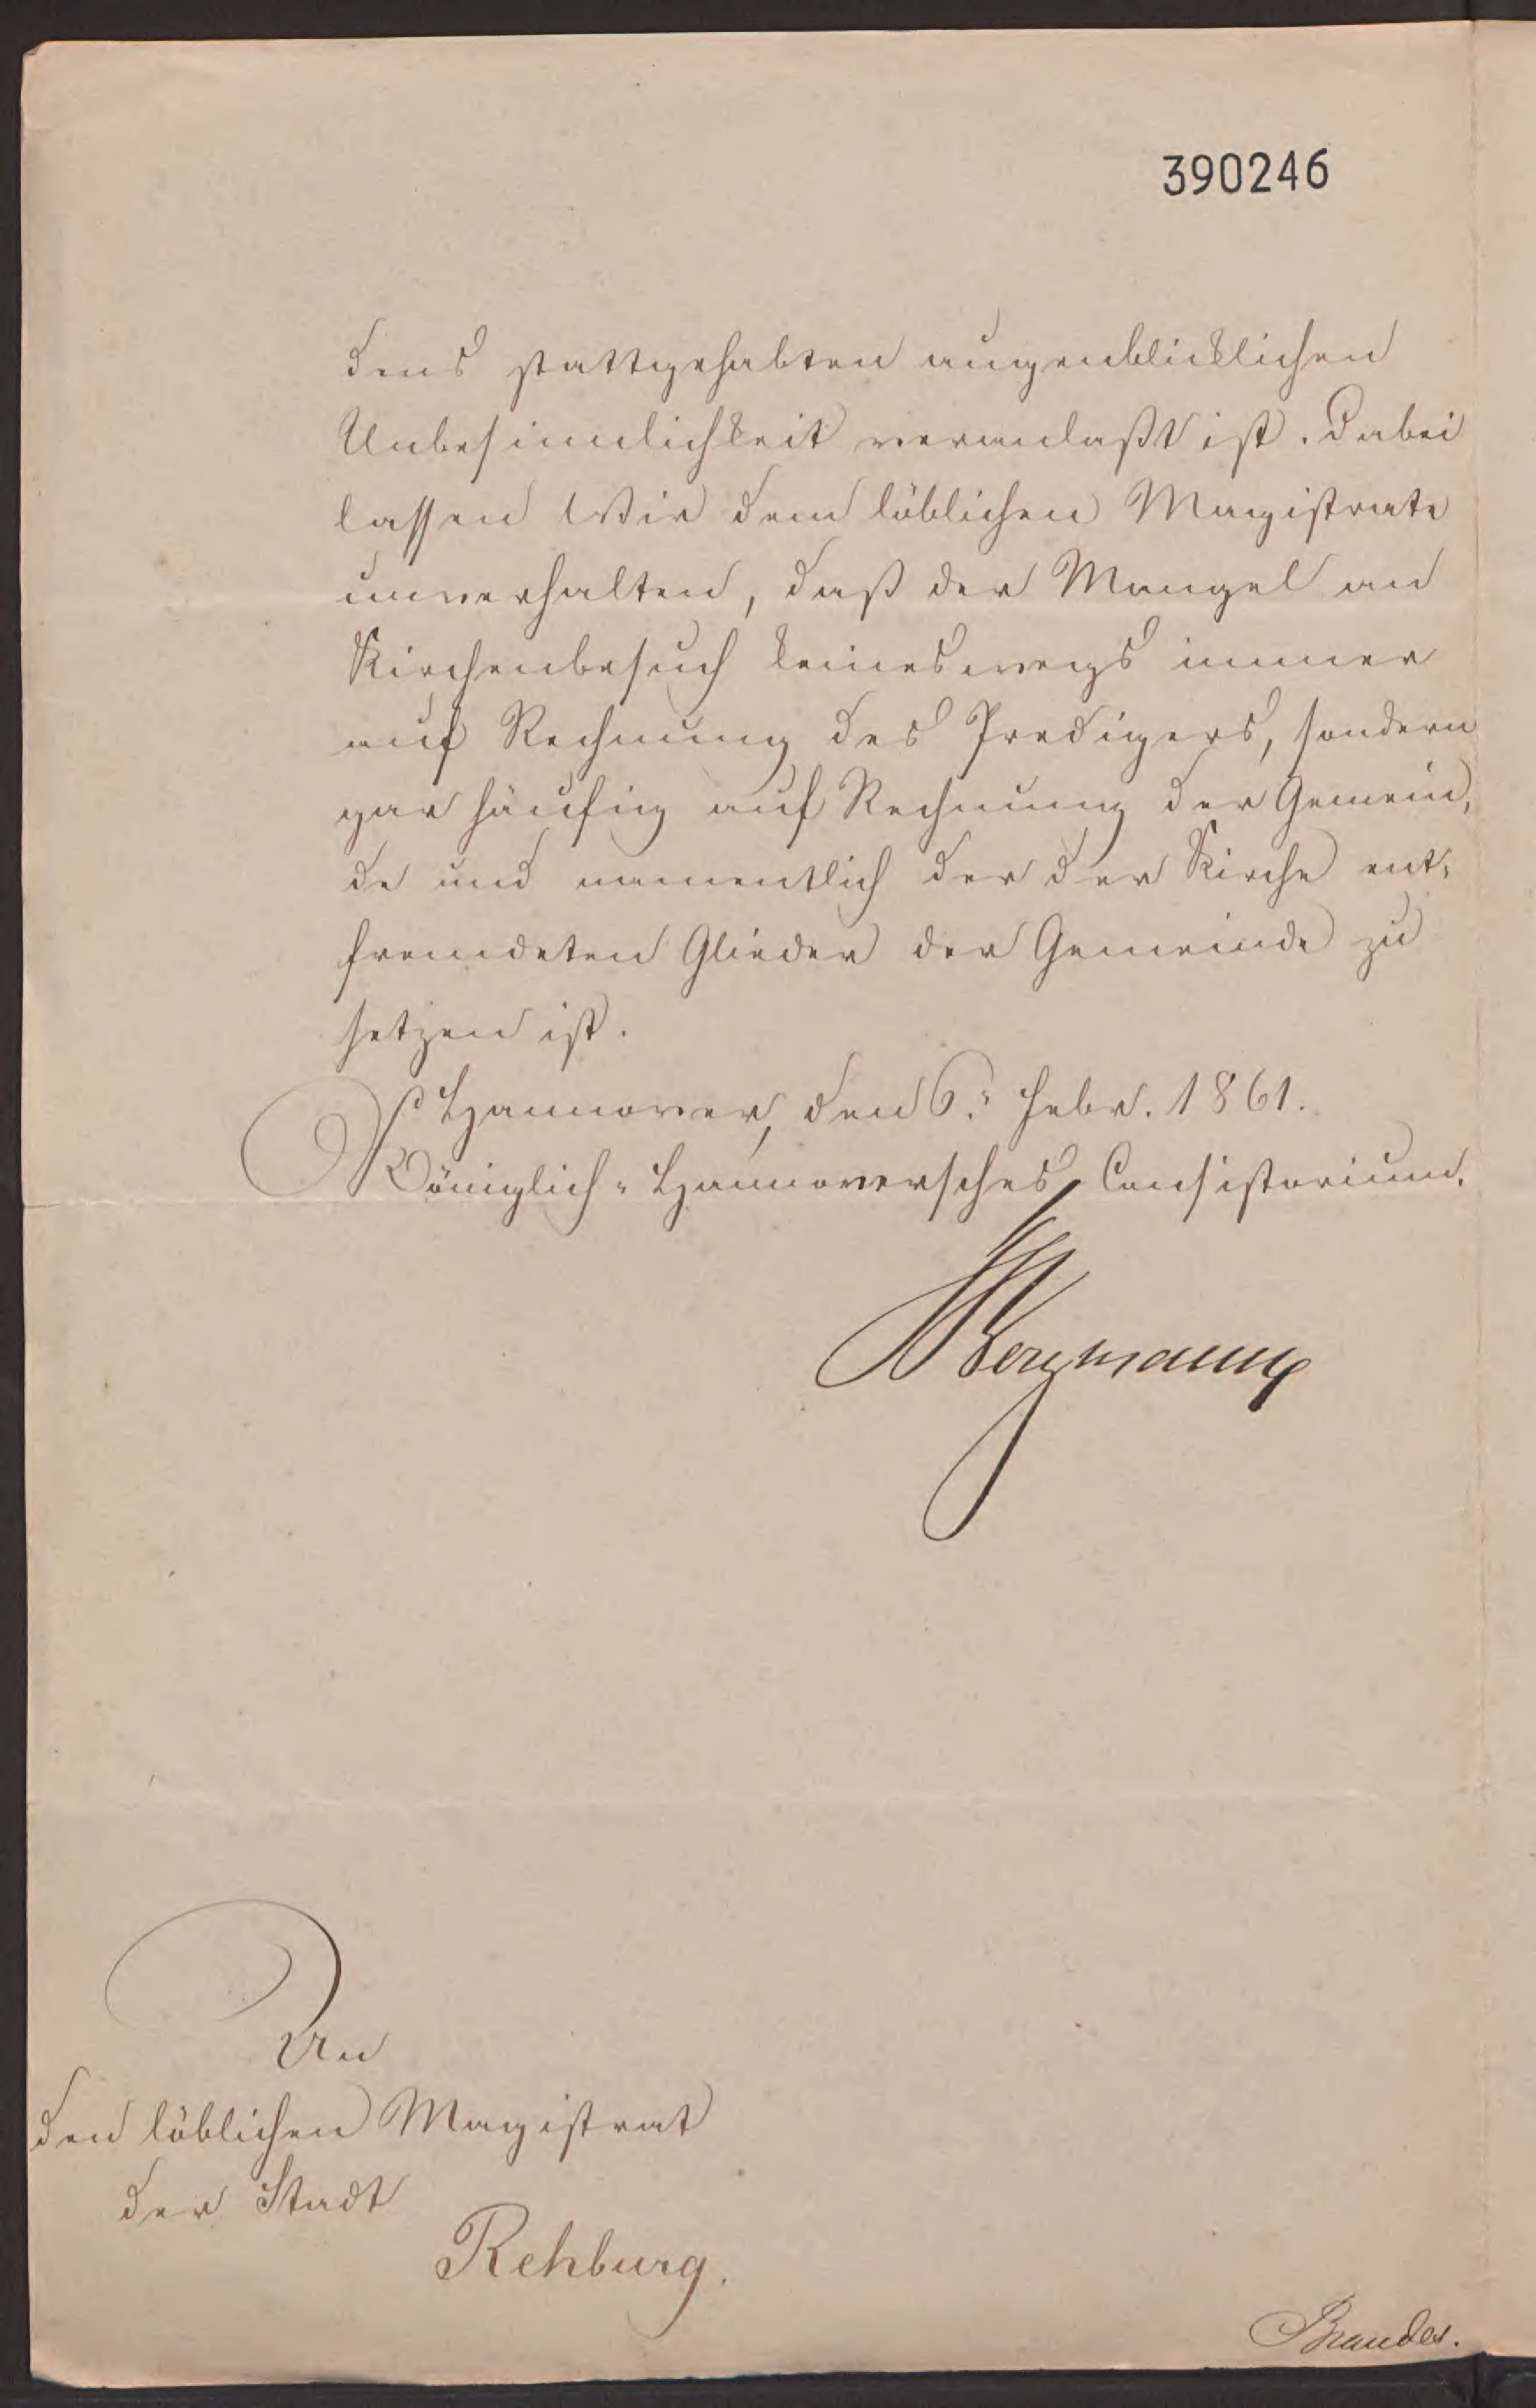 390246
dens stattgehabten augenblicklichen
Unbesinnlichkeit veranlaßt ist. Dabei
lassen Wir dem löblichen Magistrate
unverhalten, daß der Mangel an
Kirchenbesuch keineswegs immer
auf Rechnung des Predigers, sondern
gar häufig auf Rechnung der Gemein,
de und namentlich der der Kirche ent-
fremdeten Glieder der Gemeinde zu
setzen ist.
Hannover, den 6. Febr. 1861.
Königlich-Hannoversches Consistorium.
Bergmann
An
den löblichen Magistrat
der Stadt
Rehburg.
Brandes.